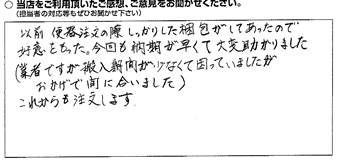 ○ 当店をご利用頂いたご感想、ご意見をお聞かせください。
(担当者の対応等もぜひお聞かせ下さい)
以前 便器注文の際 しっかりした梱包がしてあったので
好意をもった。今回も納期が早くて大変助かりました
(業者ですが搬入時間が少なくて困っていましたが
おかげで間に合いました)
これからも注文します。